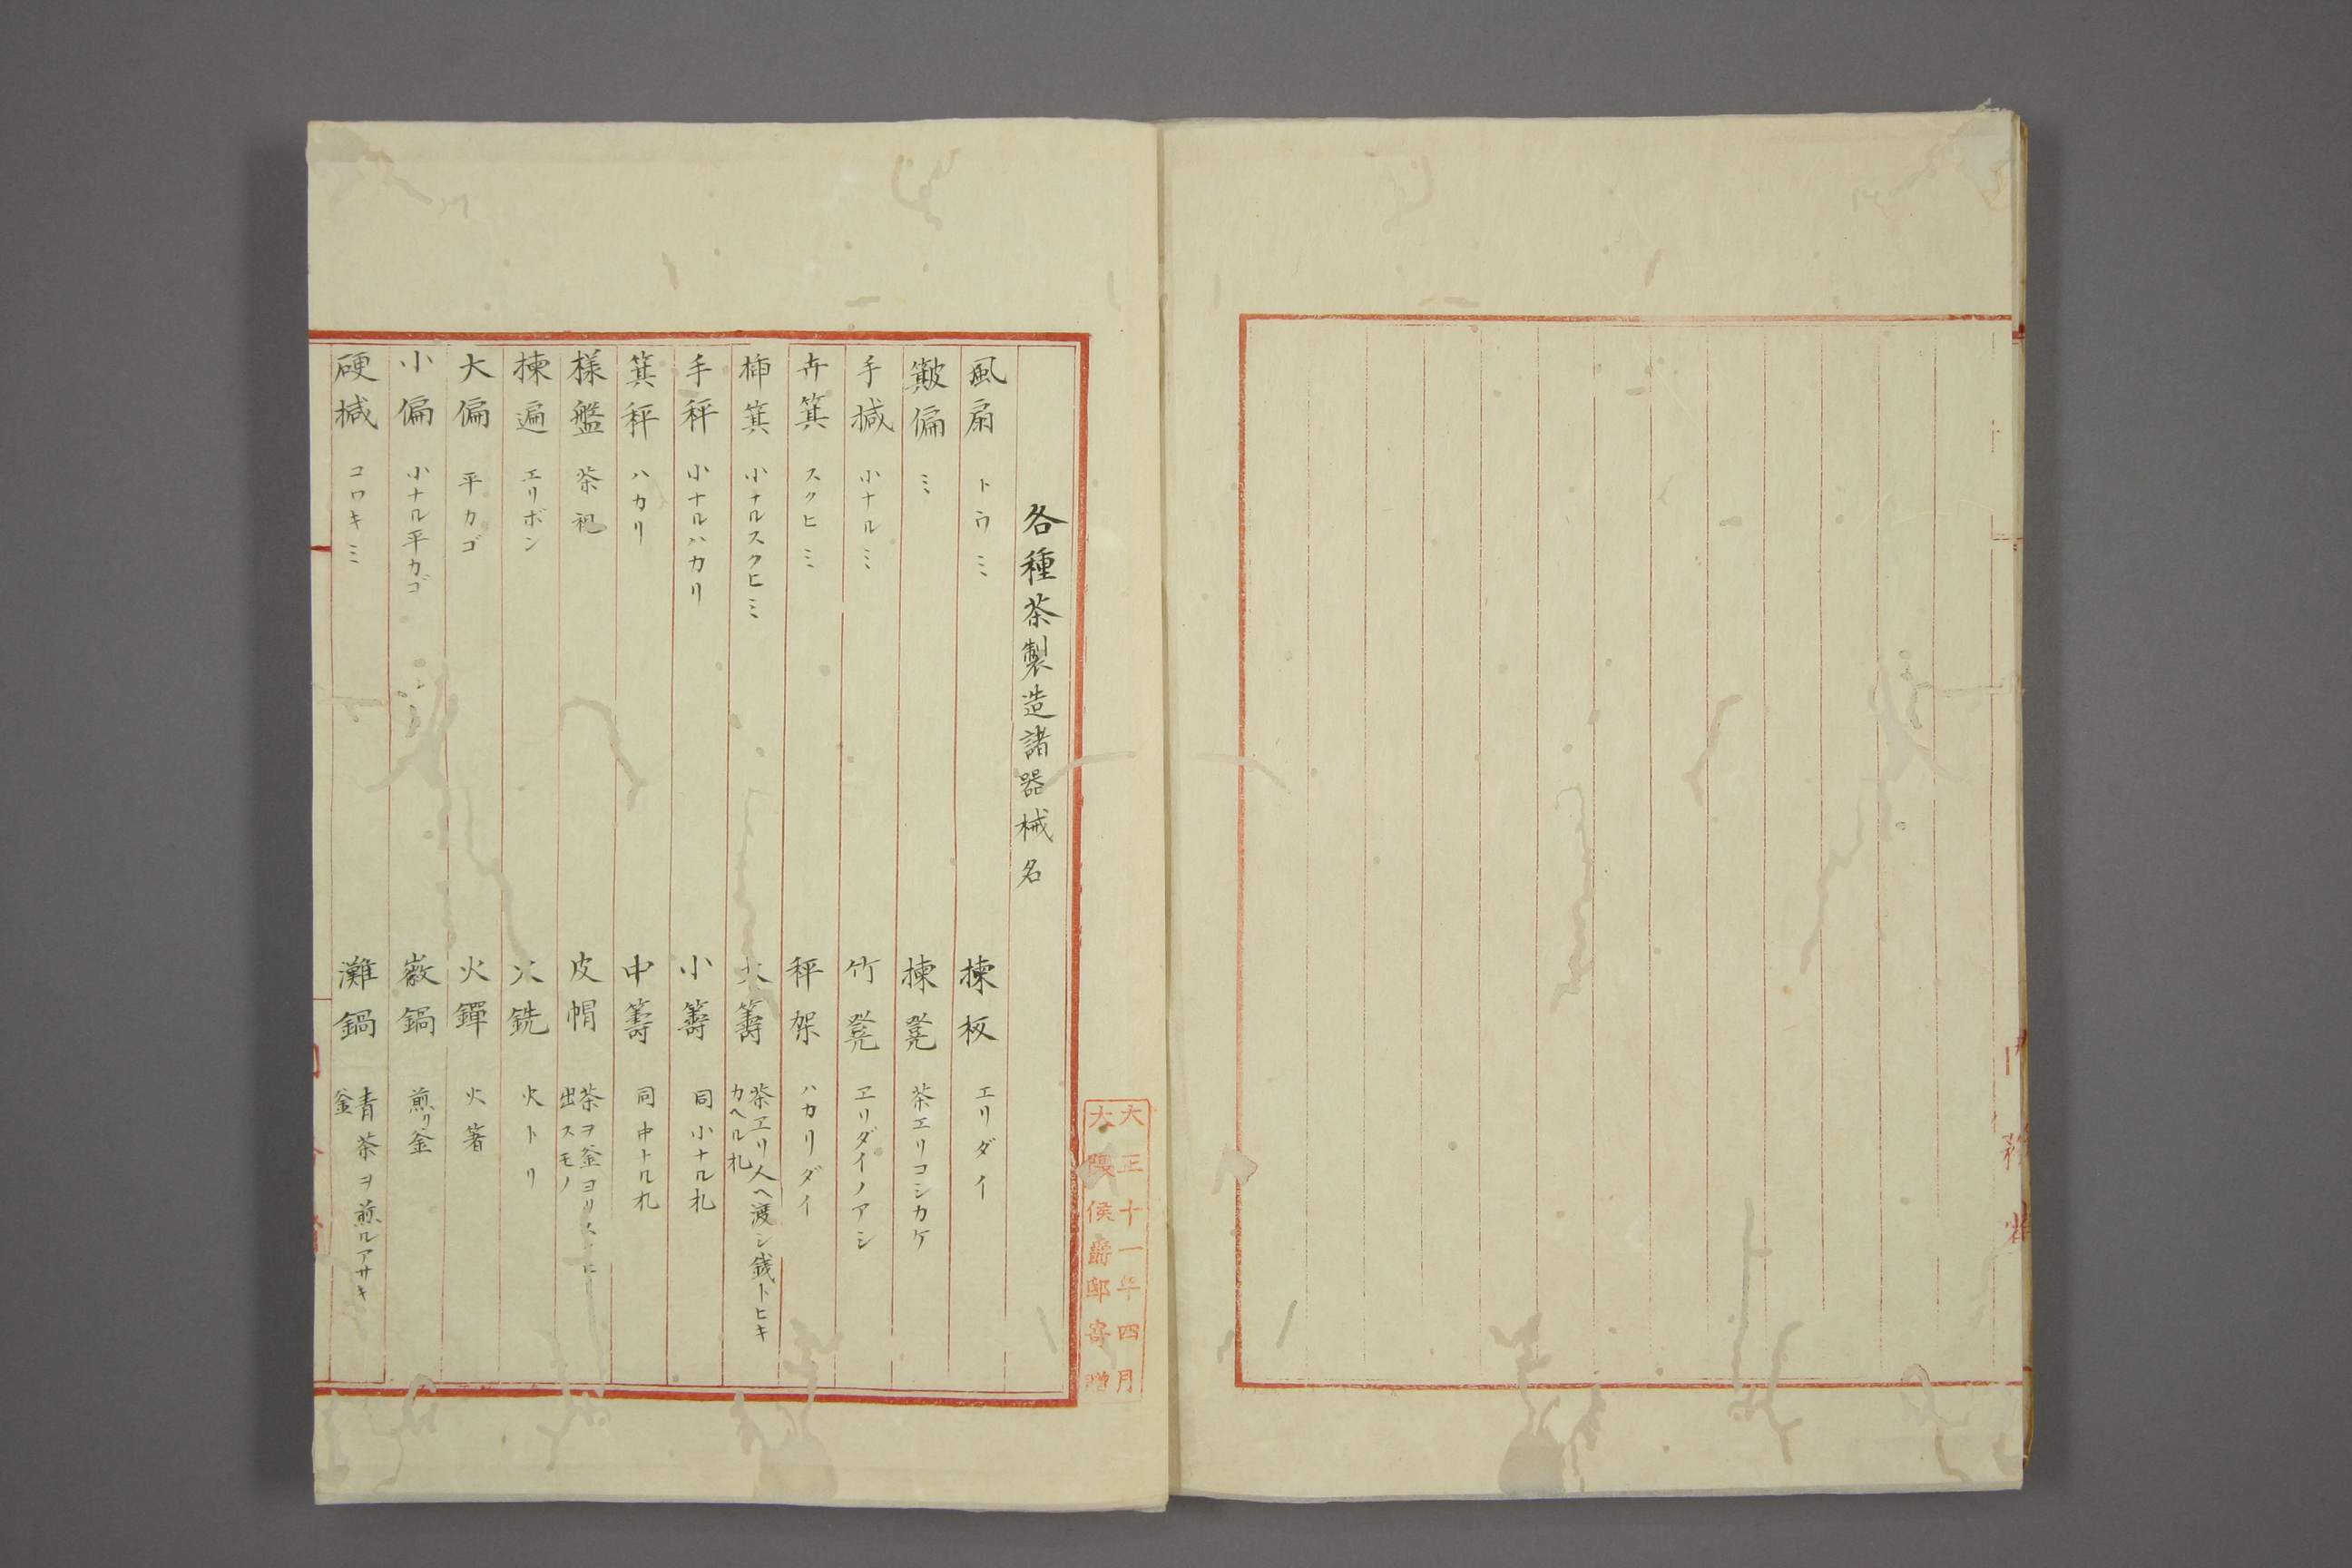 各種茶製造諸器械名
風扇 トウミ
揀板 エリダイ
簸偏 ミ
揀凳 茶エリコシカケ
手揻 小ナルミ
竹凳 エリダイノアシ
卉箕 スクヒミ
秤架 ハカリダイ
揷箕 小ナルスクヒミ
大籌 茶エリ人ヘ渡シ銭トヒキ
カヘル札
手秤 小ナルハカリ
小籌 同小ナル札
箕秤 ハカリ
中籌 同中ナル札
様盤 茶
皮帽 茶ヲ釜ヨリ
出スモノ
揀遍 エリボン
火銑 火トリ
大偏 平カゴ
火鏵 火箸
小偏 小ナル平カゴ
鍋 煎リ釜
硬揻 コワキミ
灘鍋 青茶ヲ煎ルアサキ
釜
大正十一年四月
大隈侯爵邸寄贈